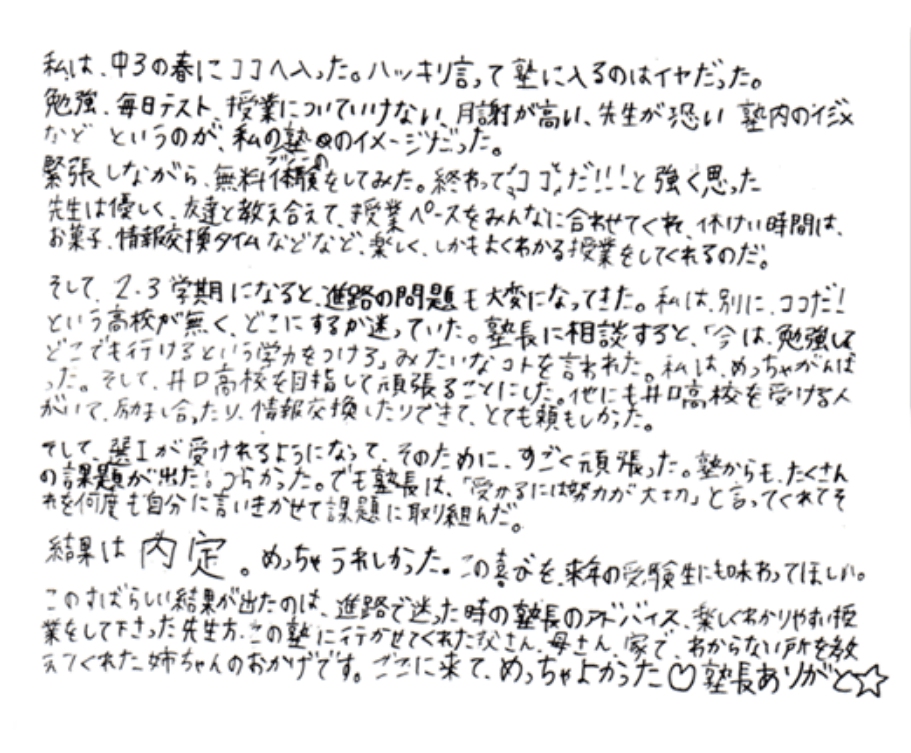 私は、中3の春にココへ入った。ハッキリ言って塾に入るのはイヤだった。
勉強、毎日テスト、授業についていけない、月謝が高い、先生が恐い 塾内のイジメ
など というのが、私の塾のイメージだった。
緊張しながら、無料体験をしてみた。終わって“ココ”だ!!!と強く思った
先生は優しく、友達と教え合えて、授業ペースをみんなに合わせてくれ、休けい時間は、
お菓子、情報交換タイムなどなど、楽しく、しかもよくわかる授業をしてくれるのだ。
そして、2・3学期になると、進路の問題も大変になってきた。私は、別に、ココだ!
という高校が無く、どこにするか迷っていた。塾長に相談すると、「今は、勉強して
どこでも行けるという学力をつけろ」みたいなコトを言われた。私は、めっちゃがんば
った。そして、井口高校を目指して頑張ることにした。他にも井口高校を受ける人
がいて、励まし合ったり、情報交換したりできて、とても頼もしかった。
そして、選Iが受けれるようになって、そのために、すごく頑張った。塾からも、たくさん
の課題が出た。つらかった。でも塾長は、「受かるには努力が大切」と言ってくれてそ
れを何度も自分に言いきかせて課題に取り組んだ。
結果は 内定。めっちゃうれしかった。この喜びを、来年の受験生にも味わってほしい。
このすばらしい結果が出たのは、進路で迷った時の塾長のアドバイス、楽しくわかりやすい授
業をして下さった先生方、この塾に行かせてくれた父さん、母さん、家で、わからない所を教
えてくれた姉ちゃんのおかげです。ここに来て、めっちゃよかった♡塾長ありがと☆